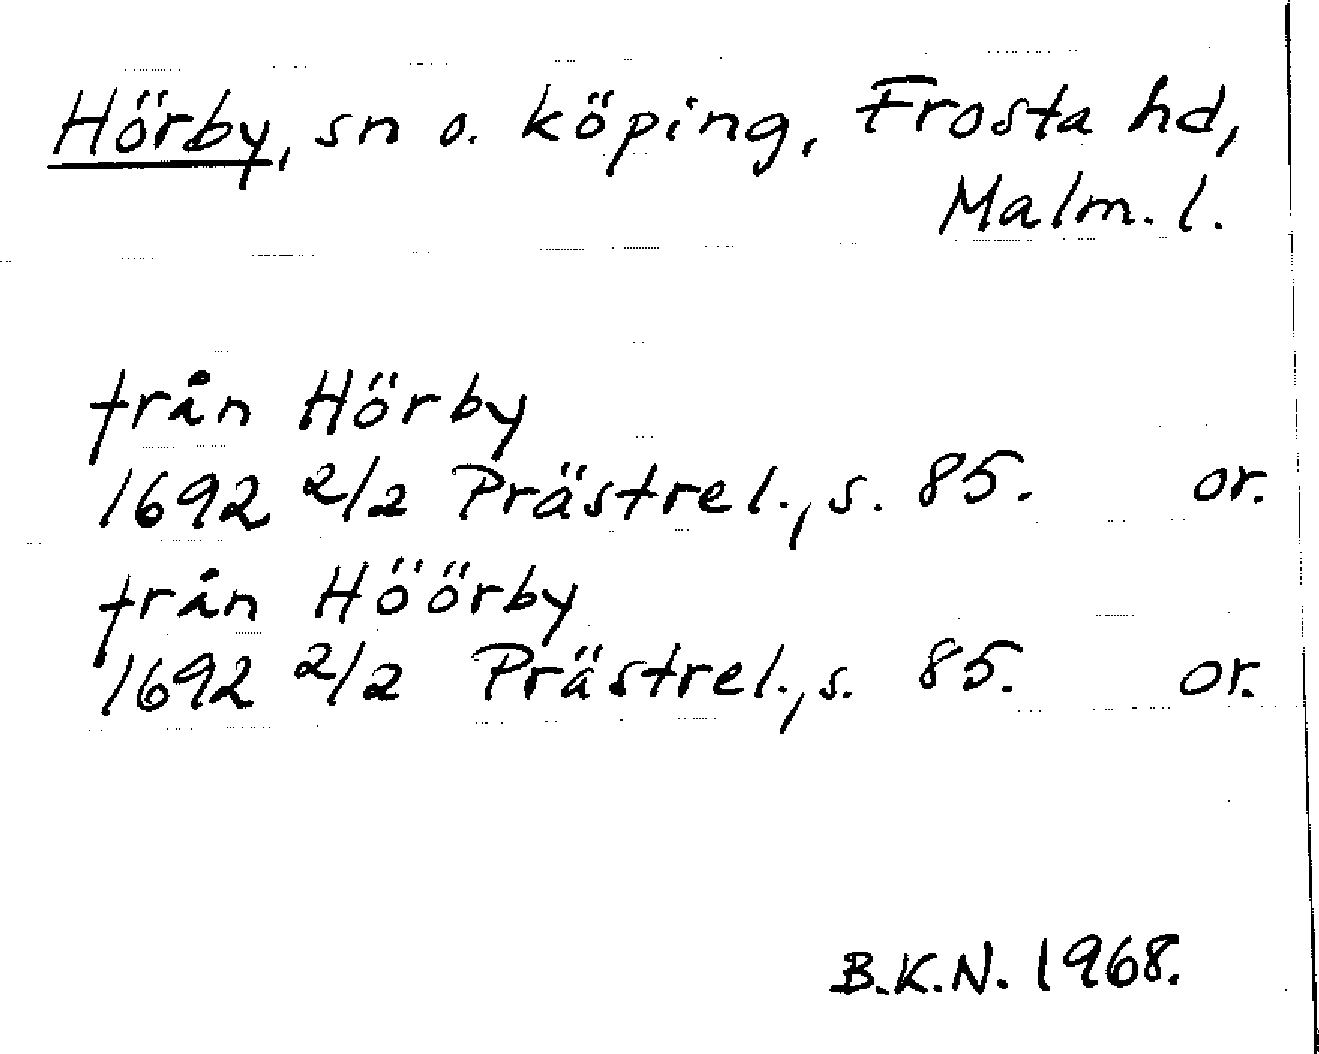 Hörby, sn o. köping, Frosta hd,
Malm. l.
från Hörby
1692 2/2 Prästrel., s. 85. or.
från Höörby
1692 2/2 Prästrel., s. 85. or.
B.K.N. 1968.